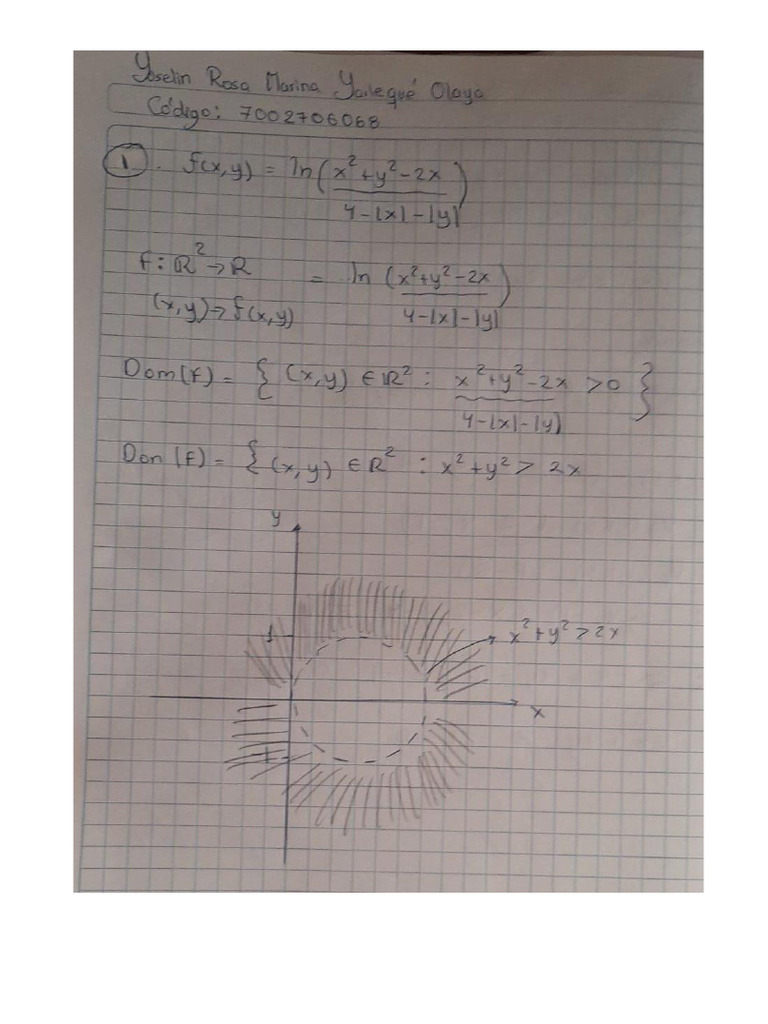 Yoselin Rosa Marina Yailequé Olaya
Código: 7002706068
1. f(x,y) = ln(x²+y²-2x / 4-|x|-|y|)
f: ℝ² → ℝ = ln (x²+y²-2x / 4-|x|-|y|)
(x,y) → f(x,y)
Dom(f) = { (x,y) ∈ ℝ² : x²+y²-2x / 4-|x|-|y| > 0 }
Don (f) = { (x,y) ∈ ℝ² : x²+y² > 2x
y
1
x²+y² > 2x
x